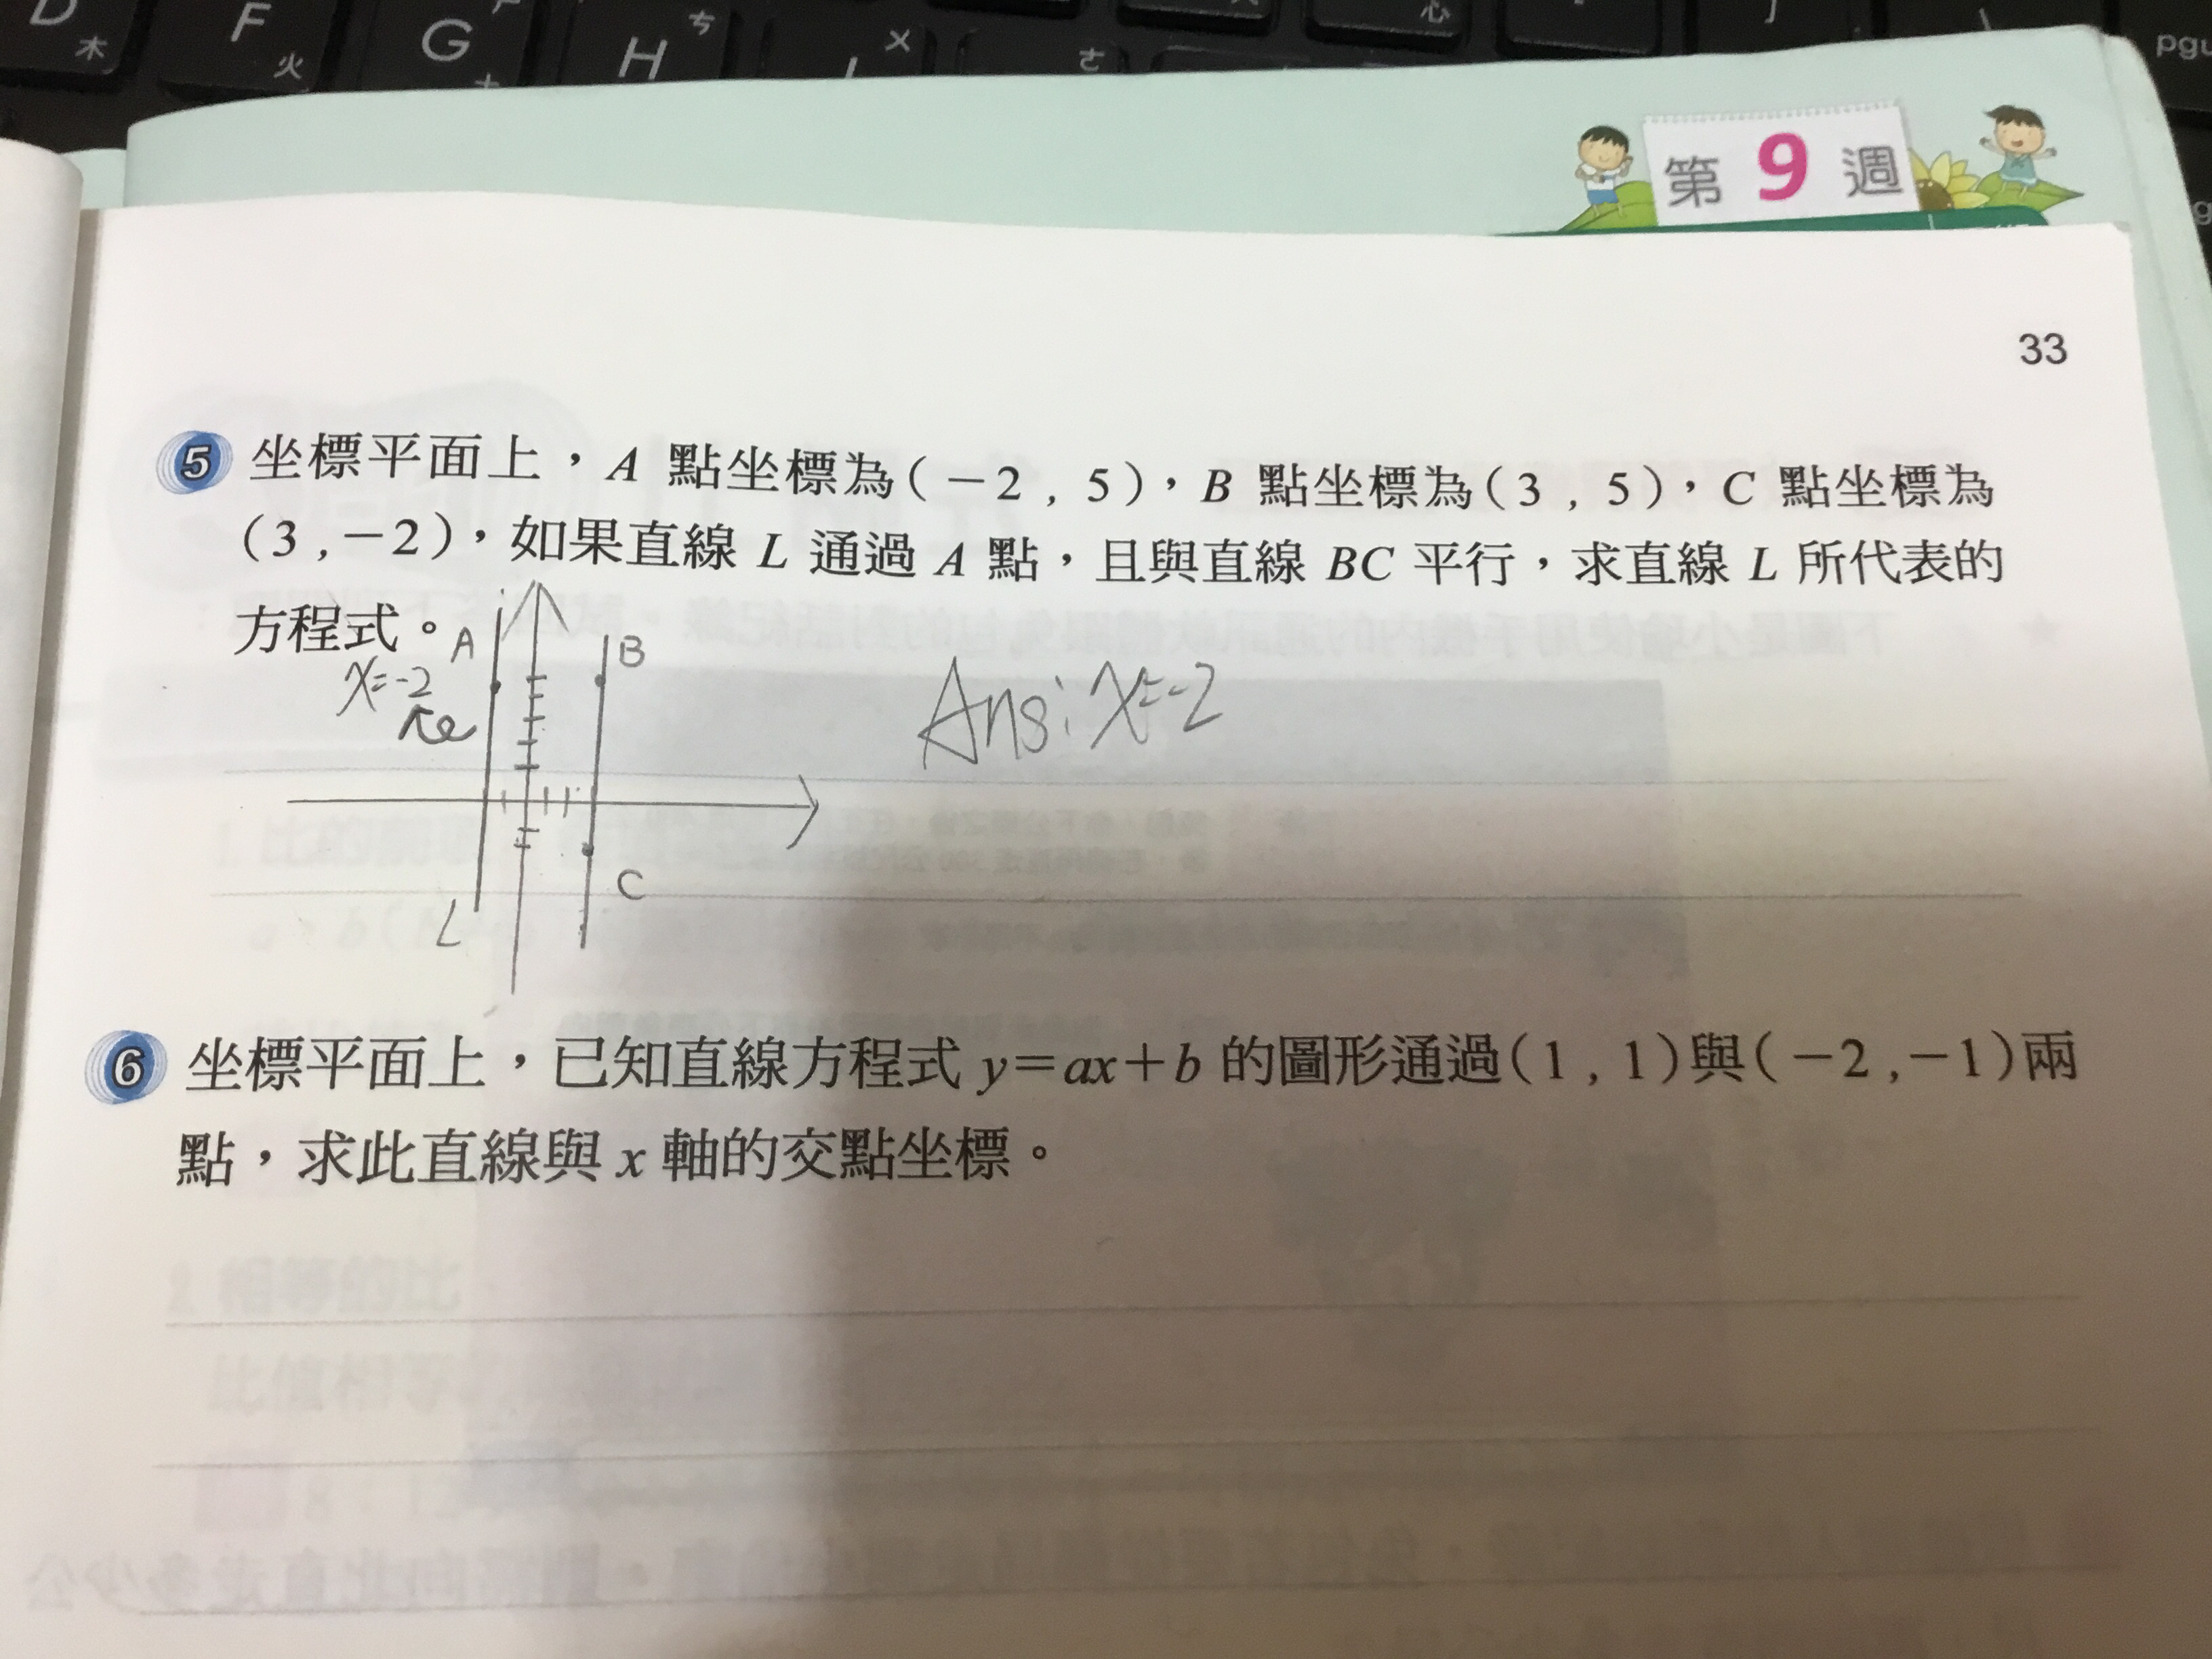 D
木
F
火
G
H
ㄘ
ㄨ
さ
心
pgu
第 9 週
33
5 坐標平面上，A 點坐標為(－2 , 5)，B 點坐標為(3 , 5)，C 點坐標為
(3 ,－2)，如果直線 L 通過 A 點，且與直線 BC 平行，求直線 L 所代表的
方程式。
A
B
x=-2
Ans: x=-2
C
L
6 坐標平面上，已知直線方程式 y=ax＋b 的圖形通過(1 , 1)與(－2 ,－1)兩
點，求此直線與 x 軸的交點坐標。